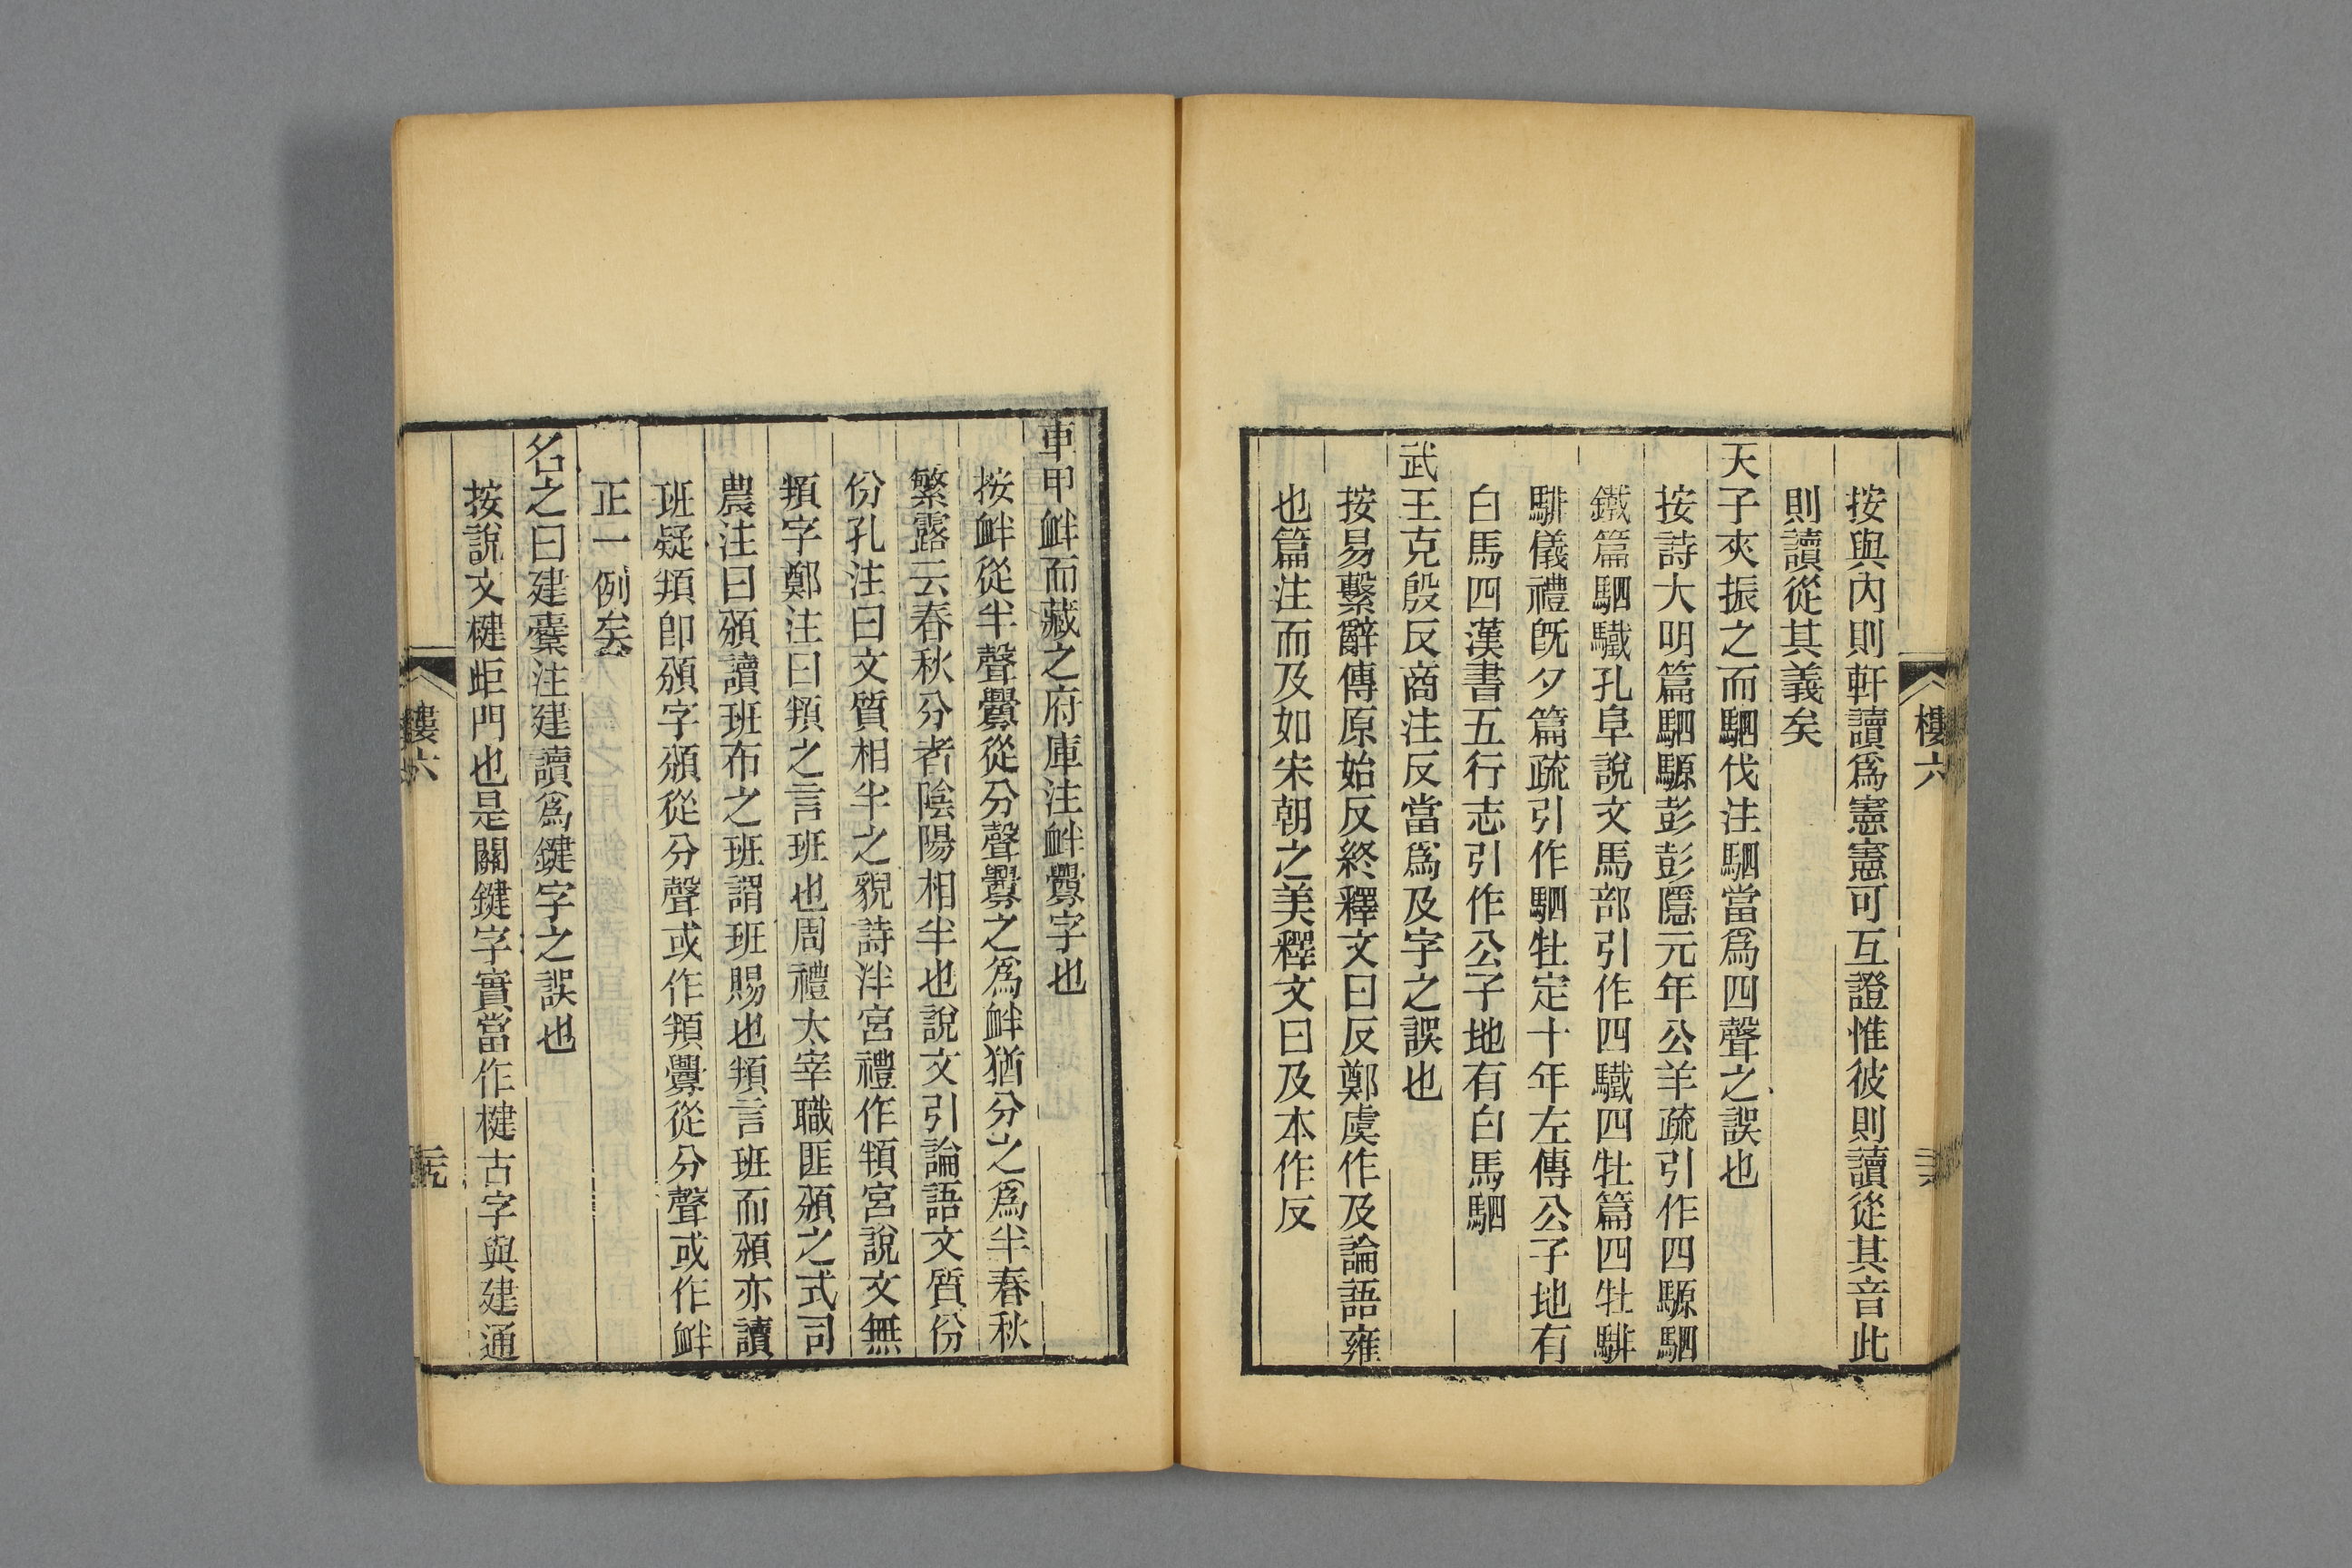 樓六
按與內則軒讀爲憲憲可互證惟彼則讀從其音此
則讀從其義矣
天子夾振之而駟伐注駟當爲四聲之誤也
按詩大明篇駟騵彭彭隱元年公羊疏引作四騵駟
鐵篇駟驖孔阜說文馬部引作四驖四牡篇四牡騑
騑儀禮旣夕篇疏引作駟牡定十年左傳公子地有
白馬四漢書五行志引作公子地有白馬駟
武王克殷反商注反當爲及字之誤也
按易繫辭傳原始反終釋文曰反鄭虞作及論語雍
也篇注而及如宋朝之美釋文曰及本作反
車甲衅而藏之府庫注衅釁字也
按衅從半聲釁從分聲釁之爲衅猶分之爲半春秋
繁露云春秋分者陰陽相半也說文引論語文質份
份孔注曰文質相半之貌詩泮宮禮作頖宮說文無
頖字鄭注曰頖之言班也周禮大宰職匪頒之式司
農注曰頒讀班布之班謂班賜也頖言班而頒亦讀
班疑頖卽頒字頒從分聲或作頖釁從分聲或作衅
正一例矣
名之曰建櫜注建讀爲鍵字之誤也
按說文楗歫門也是關鍵字實當作楗古字與建通
樓六